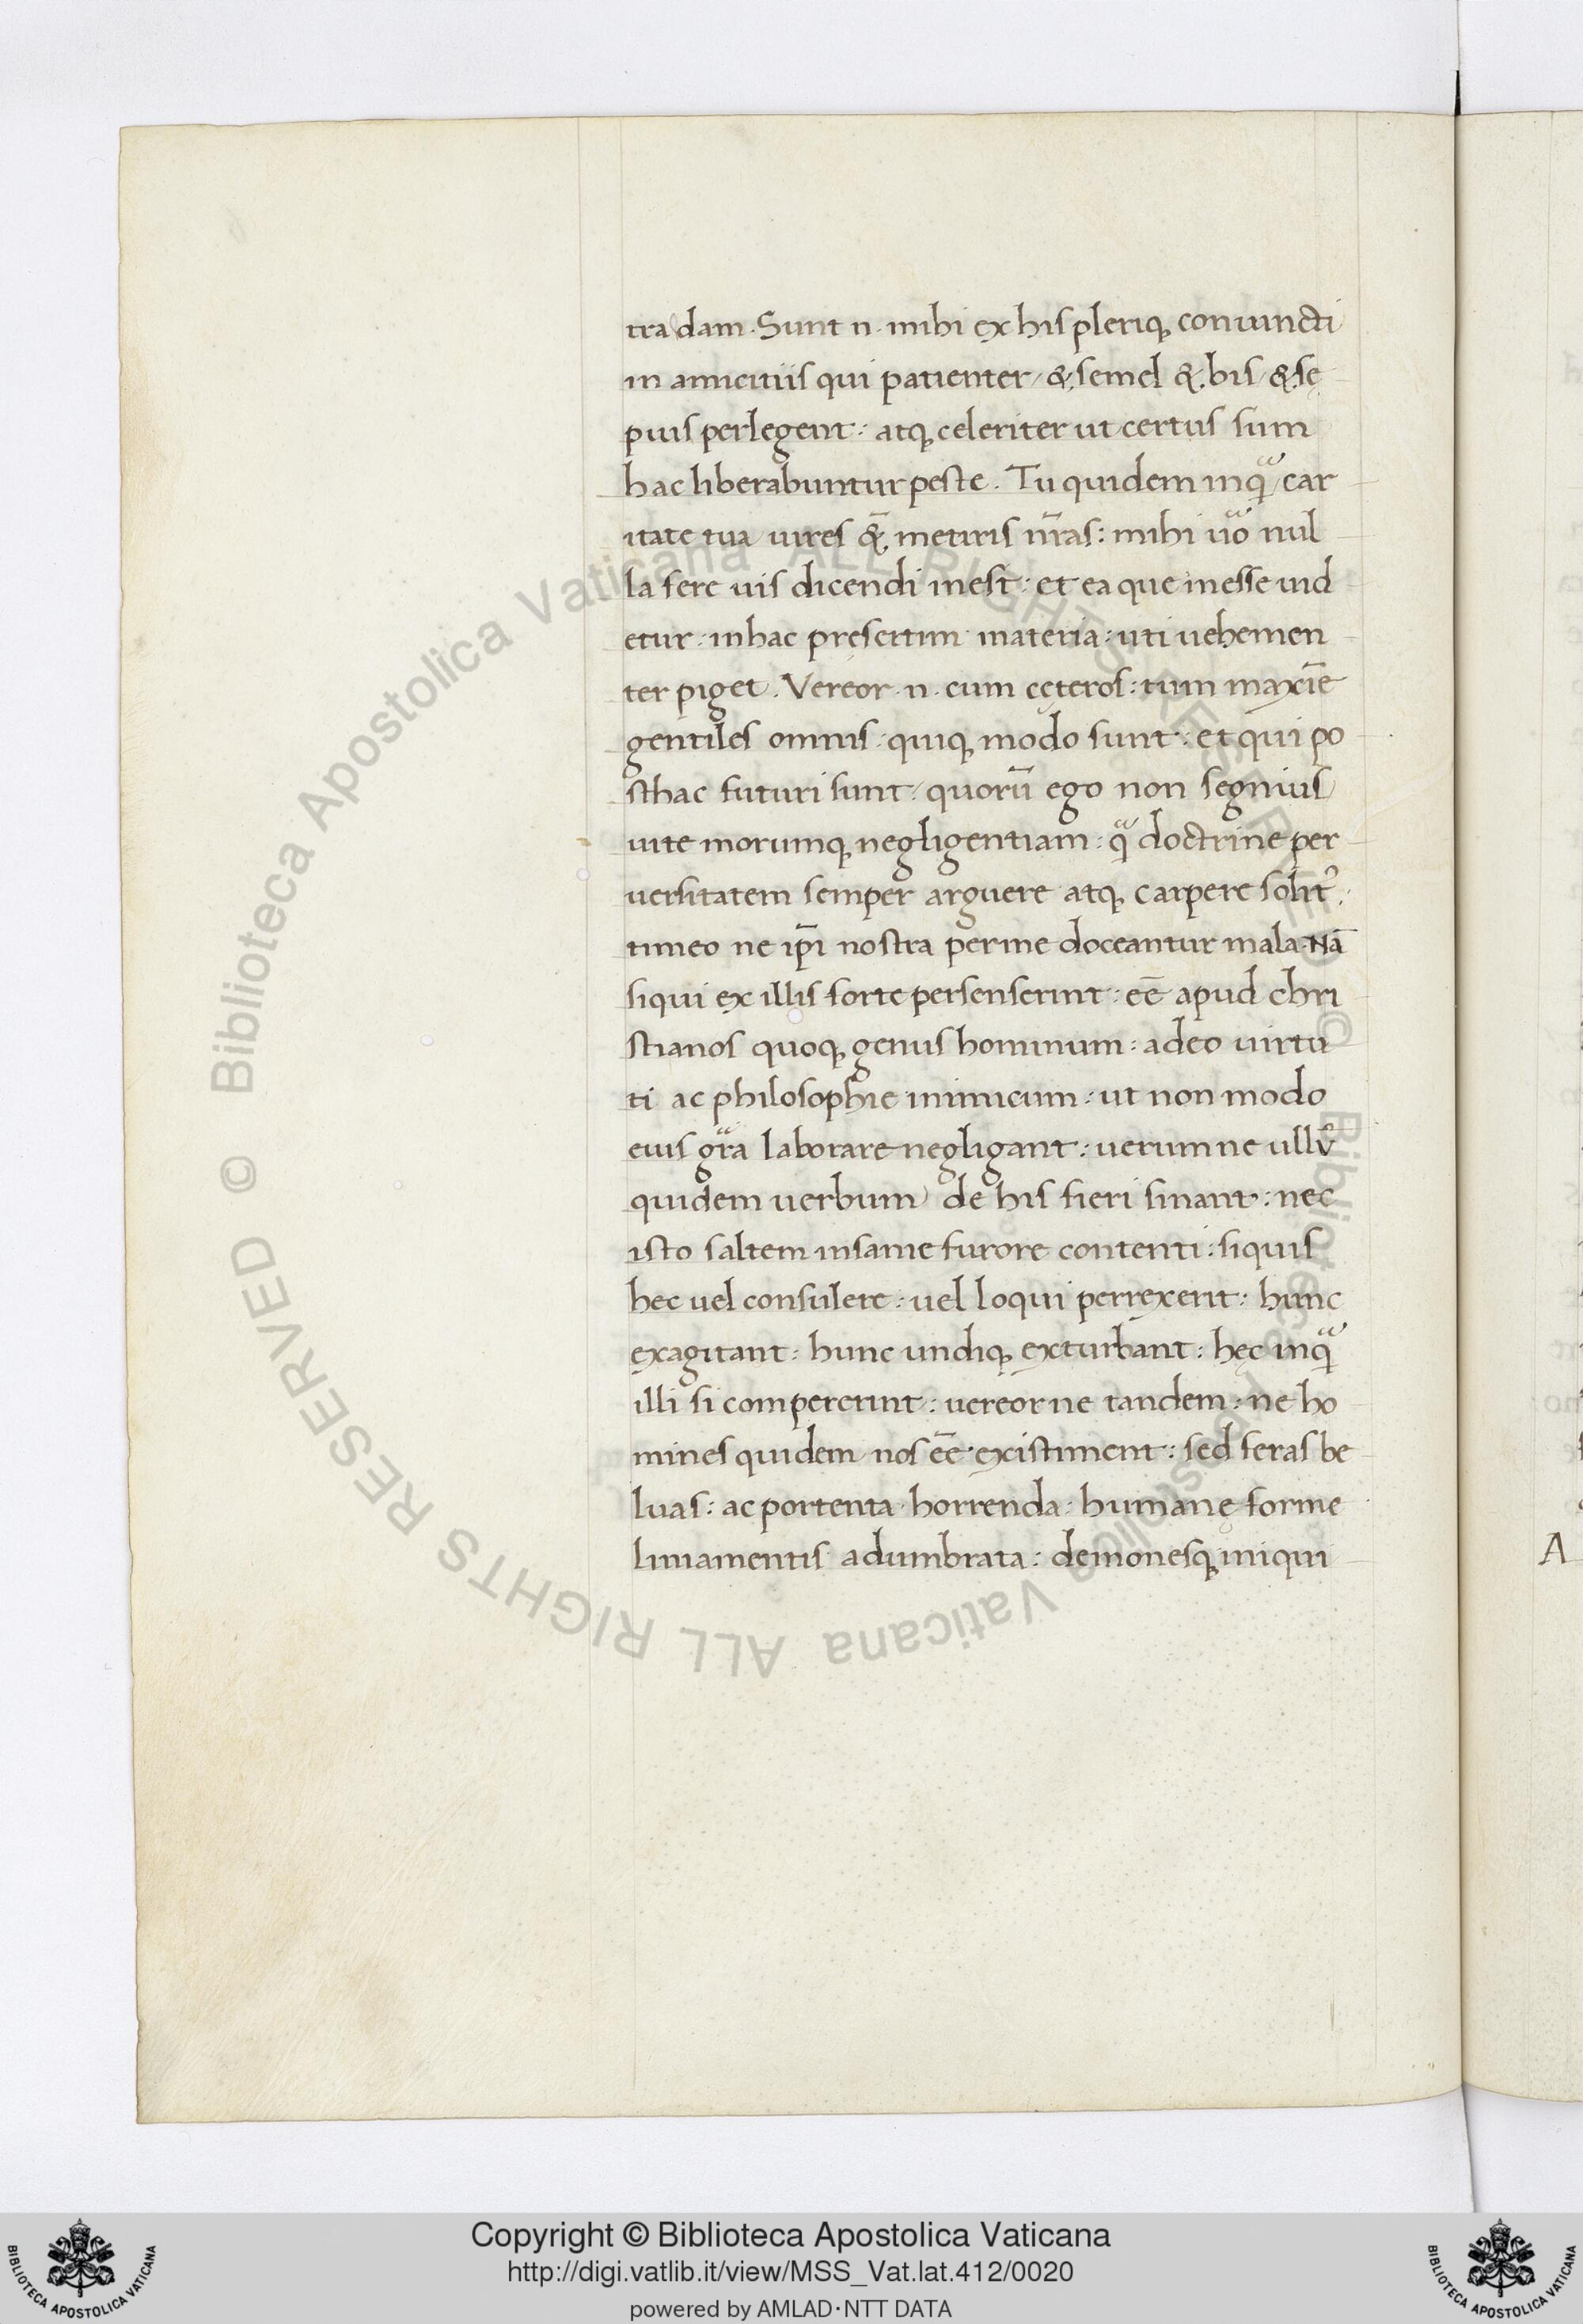 tradam. Sunt n. mihi ex his pleriq; coniuncti
in amicitiis qui patienter / & semel & bis / & sę
pius perlegent : atq; celeriter ut certus sum
hac liberabuntur peste. Tu quidem inqᷓ / car
itate tua uires &̄ metiris nr̄as : mihi uͦo nul
la fere uis dicendi inest : et ea que inesse uid
etur : in hac presertim materia : uti uehemen
ter piget. Vereor .n. cum cęteros : tum maxīe
gentiles omnis : quiq; modo sunt : et qui po
sthac futuri sunt / quorū ego non segnius
uite morumq; negligentiam : qᷓ doctrine per
uersitatem semper arguere atq; carpere solit᾿ :
timeo ne ip̄i nostra per me doceantur mala. Nā
siqui ex illis forte persenserint : eē apud chri
stianos quoq; genus hominum : adeo uirtu
ti ac philosophie inimicum : ut non modo
eius gr̄a laborare negligant : uerum ne ullū
quidem uerbum de his fieri sinant : nec
isto saltem insanie furore contenti : siquis
hec uel consulere : uel loqui perrexerit : hunc
exagitant : hunc undiq; exturbant : hęc inqᷓ
illi si compererint : uereor ne tandem : ne ho
mines quidem nos eē existiment : sed feras be
luas : ac portenta horrenda : humanę forme
liniamentis adumbrata : demonesq; iniqui
A
© Biblioteca Apostolica Vaticana ALL RIGHTS RESERVED
© Biblioteca Apostolica Vaticana ALL RIGHTS RESERVED
Copyright © Biblioteca Apostolica Vaticana
http://digi.vatlib.it/view/MSS_Vat.lat.412/0020
powered by AMLAD·NTT DATA
BIBLIOTECA APOSTOLICA VATICANA
BIBLIOTECA APOSTOLICA VATICANA